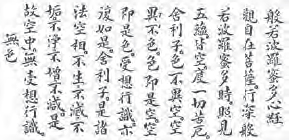 般若波羅蜜多心経
觀自在菩薩行深般
若波羅蜜多時照見
五蘊皆空度一切苦厄
舍利子色不異空空
異不色色即是空空
即是色受想行識亦
復如是舍利子是諸
法空相不生不滅不
垢不淨不增不減是
故空中無受想行識
無色